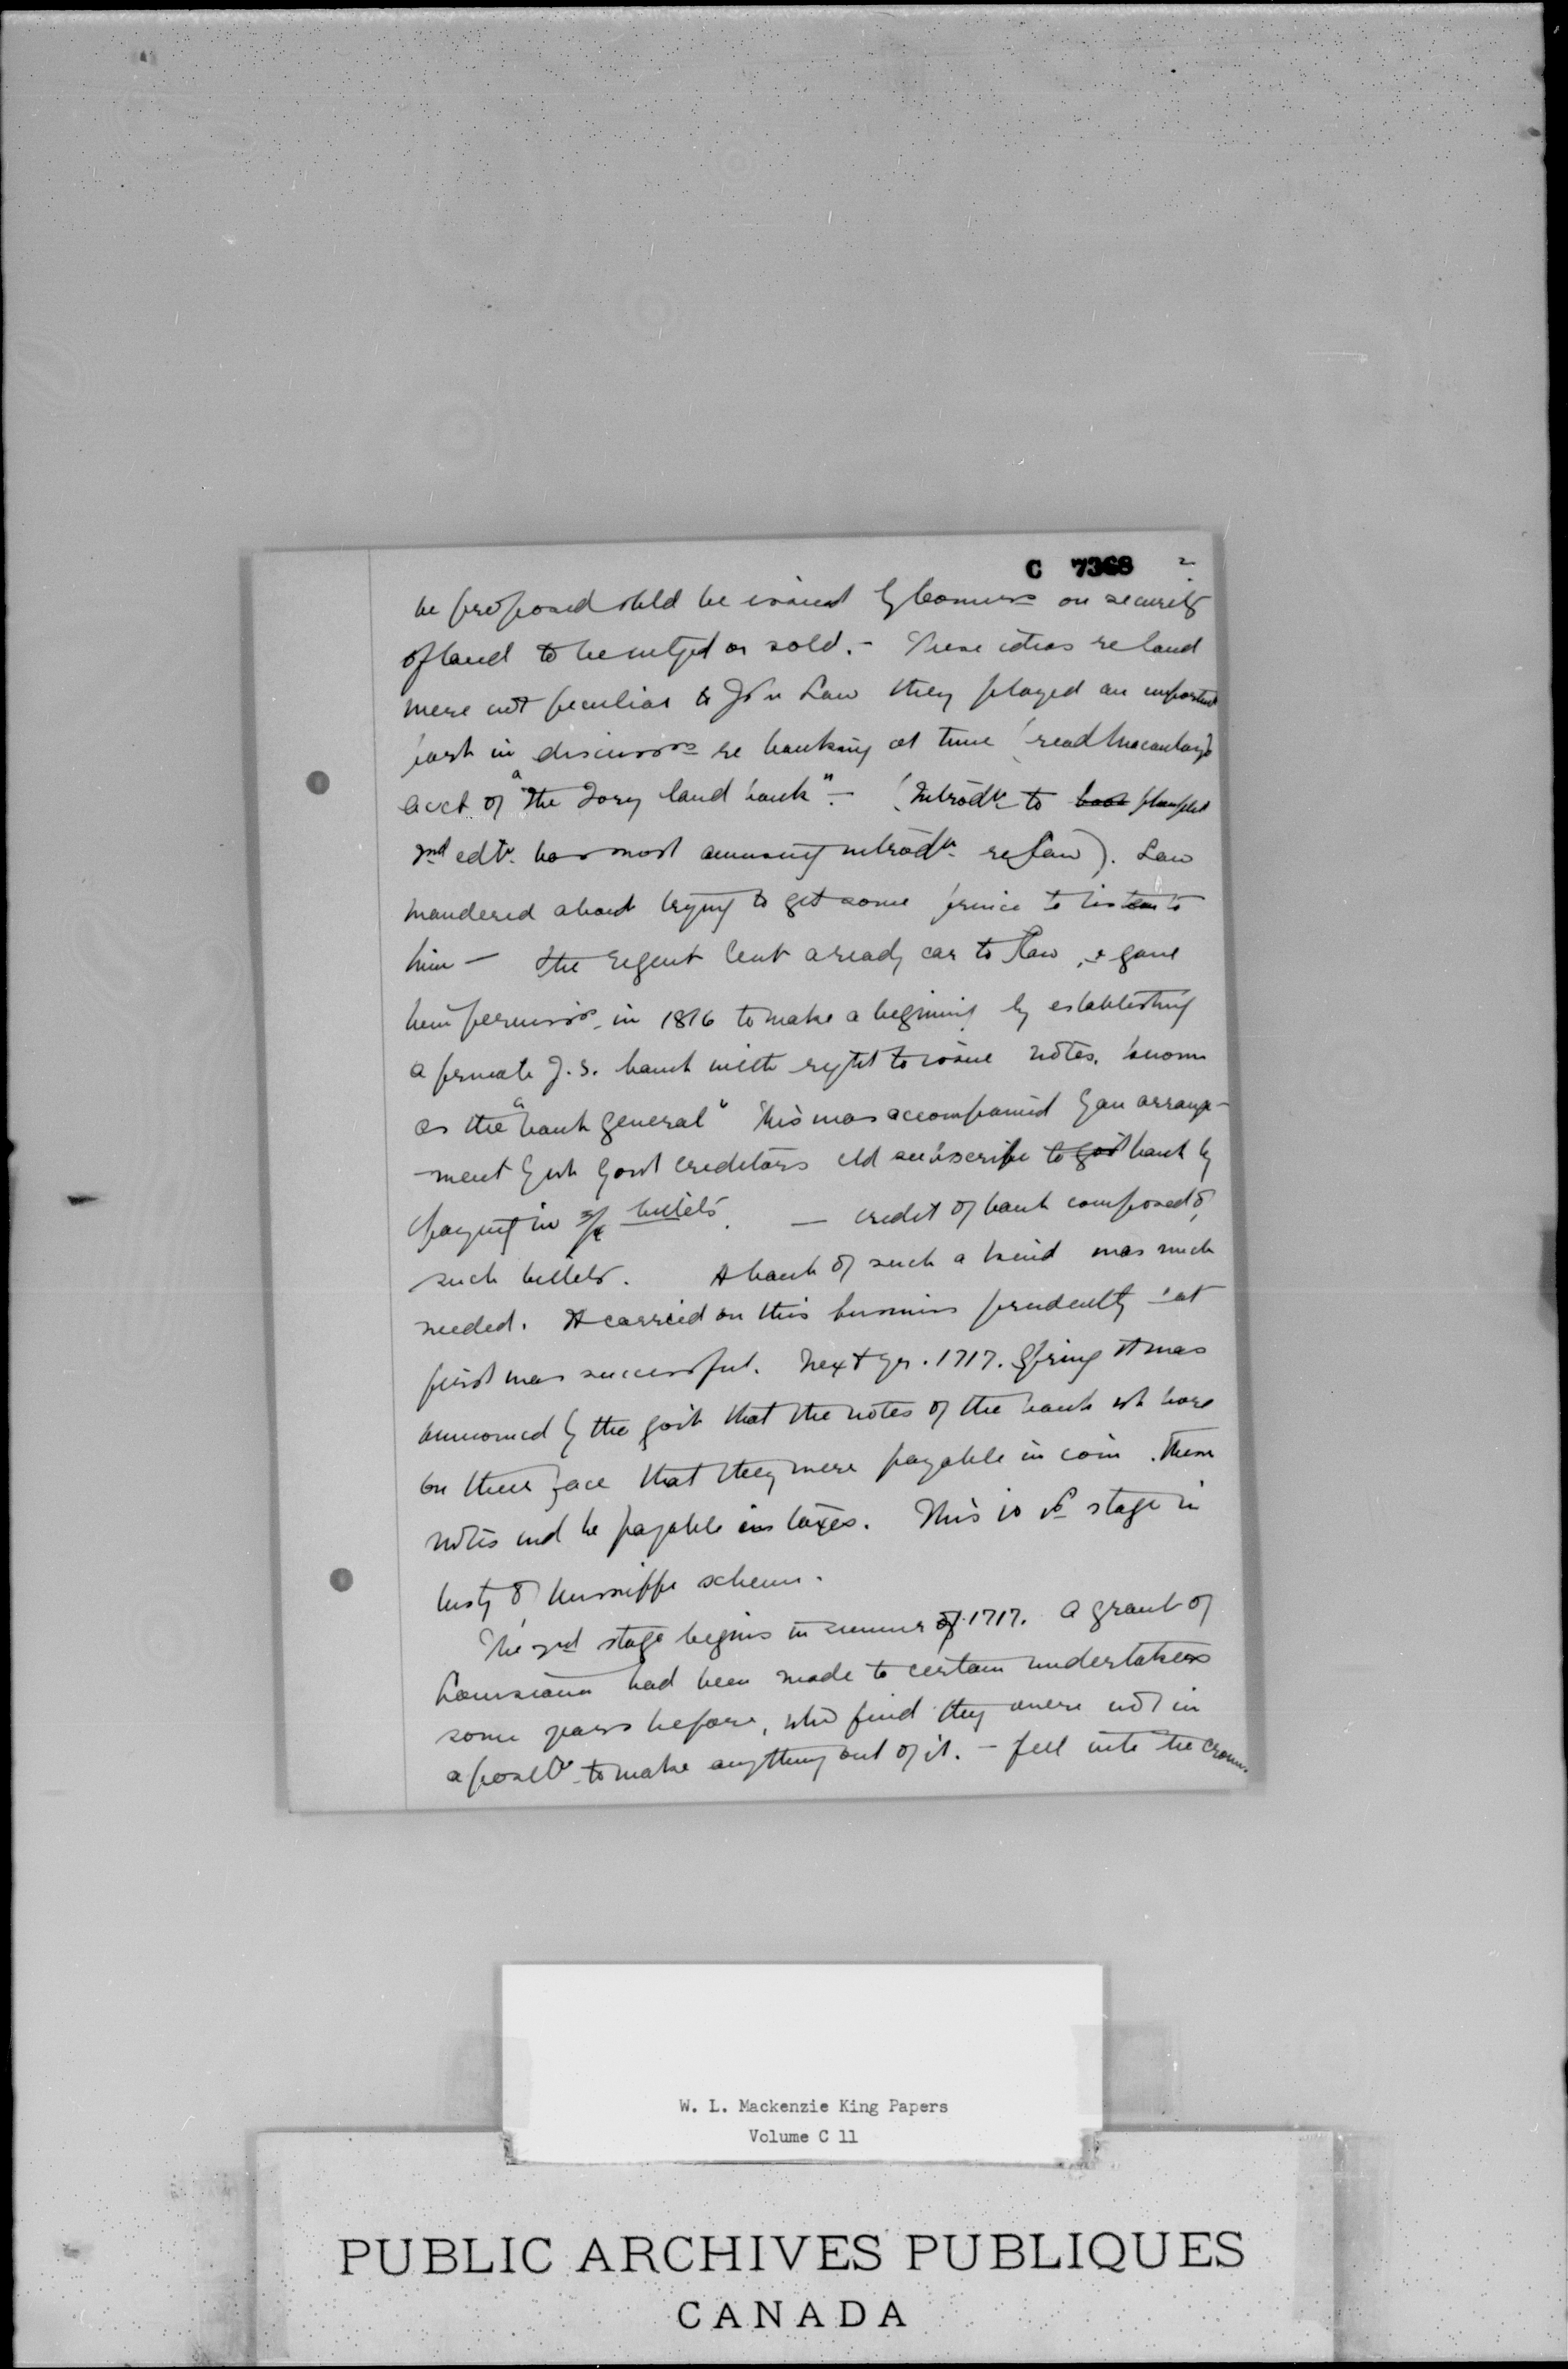 C 7368 2
he proposed shld be issued by Commrs on security
of land to be mtged or sold. - These ideas re land
were not peculiar to Jon Law they played an important
part in discussns re banking at time (read Macaulay's
acct of "the Tory land bank" - (Introdn to book pamphlet
2nd edtn. has most amusing introdn re Law). Law
wandered about trying to get some prince to listen to
him — The regent lent a ready ear to Law, & gave
him permissn in 1816 to make a beginning by establishing
a private J.S. bank with right to issue notes, known
as the "bank general" This was accompanied by an arrange-
-ment by wh govt creditors cld subscribe to govt bank by
paying in billets. — credit of bank composed of
such billets. A bank of such a kind was much
needed. It carried on this business prudently & at
first was successful. Next yr. 1717. Spring it was
announced by the govt that the notes of the bank wh bore
on their face that they were payable in coin. These
notes wd be payable in taxes. This is 1st stage in
histy of Mississippi scheme.
The 2nd stage begins in summer of 1717. A grant of
Louisiana had been made to certain undertakers
some years before, who find they were not in
a positn to make anything out of it. - fell into the crowns
W. L. Mackenzie King Papers
Volume C 11
PUBLIC ARCHIVES PUBLIQUES
CANADA